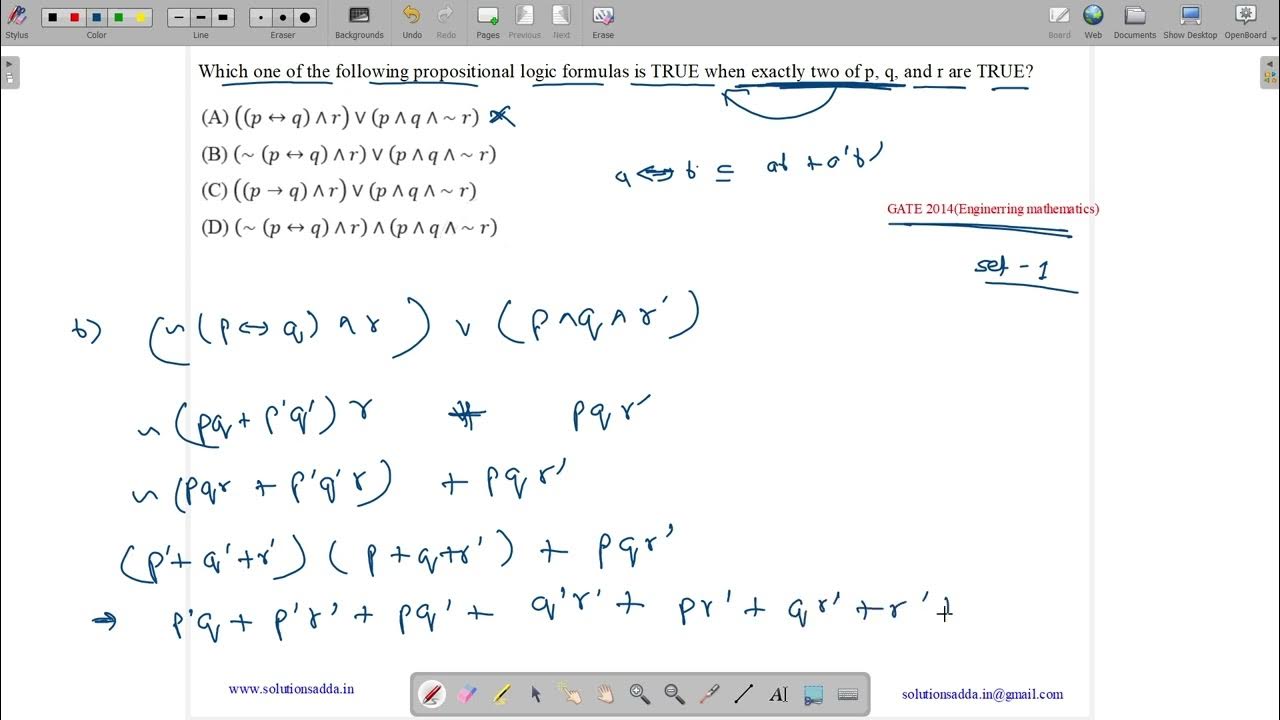 Stylus Color Line Eraser Backgrounds Undo Redo Pages Previous Next Erase Board Web Documents Show Desktop OpenBoard
Which one of the following propositional logic formulas is TRUE when exactly two of p, q, and r are TRUE?
(A) ((p ↔ q) ∧ r) ∨ (p ∧ q ∧ ~ r)
(B) (~ (p ↔ q) ∧ r) ∨ (p ∧ q ∧ ~ r)
a ⇔ b = ab + a'b'
(C) ((p → q) ∧ r) ∨ (p ∧ q ∧ ~ r)
GATE 2014(Enginerring mathematics)
(D) (~ (p ↔ q) ∧ r) ∧ (p ∧ q ∧ ~ r)
set - 1
b) (~(p ⇔ q) ∧ r) ∨ (p ∧ q ∧ r')
~ (pq + p'q') r + pqr'
~ (pqr + p'q'r) + pqr'
(p' + q' + r') (p + q + r') + pqr'
→ p'q + p'r' + pq' + q'r' + pr' + qr' + r' +
www.solutionsadda.in
solutionsadda.in@gmail.com